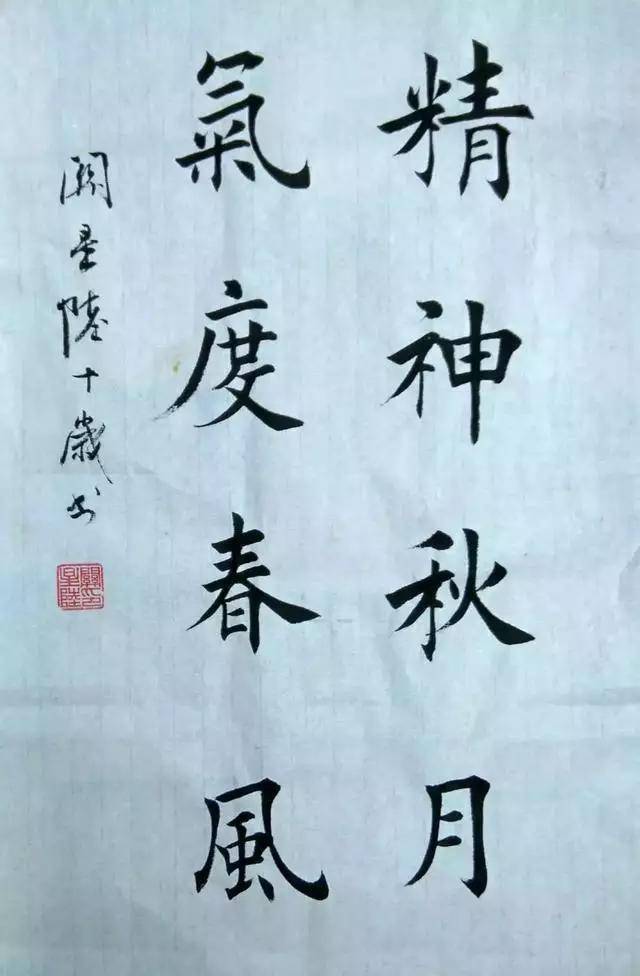 精神秋月
氣度春風
關星陸十歲书